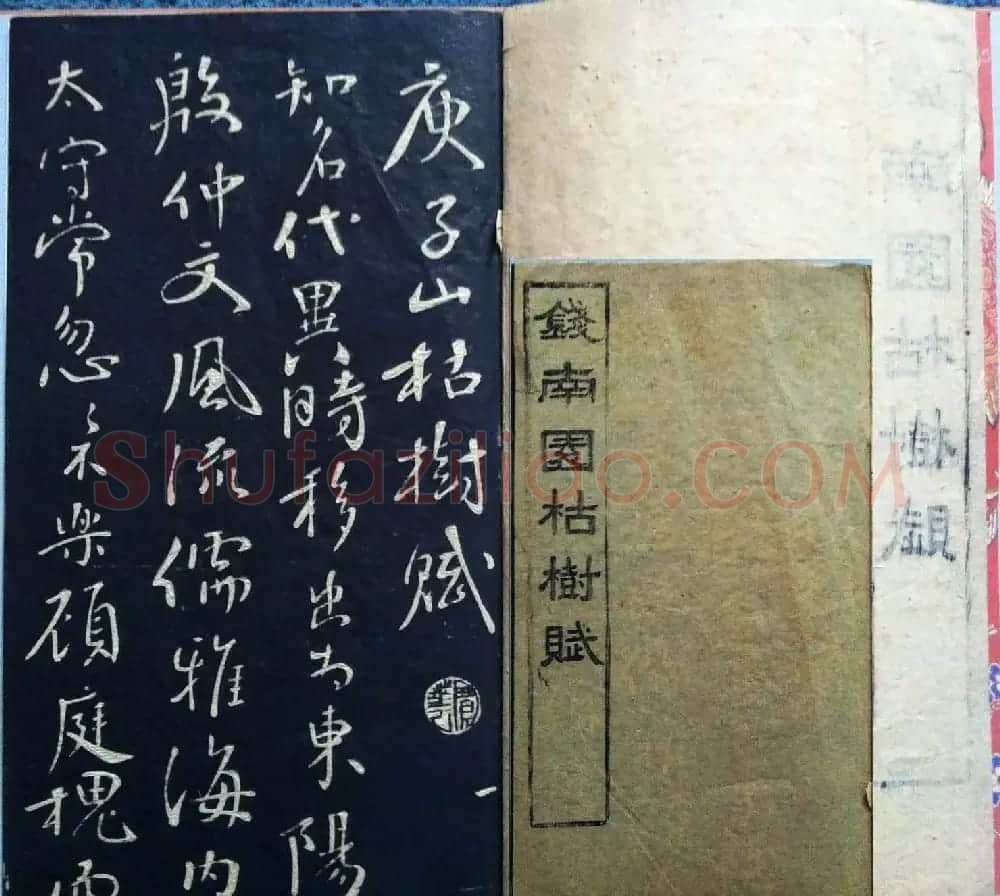 錢南園枯樹賦
庾子山枯樹賦
知名代異時移出為東陽
殷仲文風流儒雅海内
太守常忽々不樂顧庭槐而
一
Shufaziliao.COM